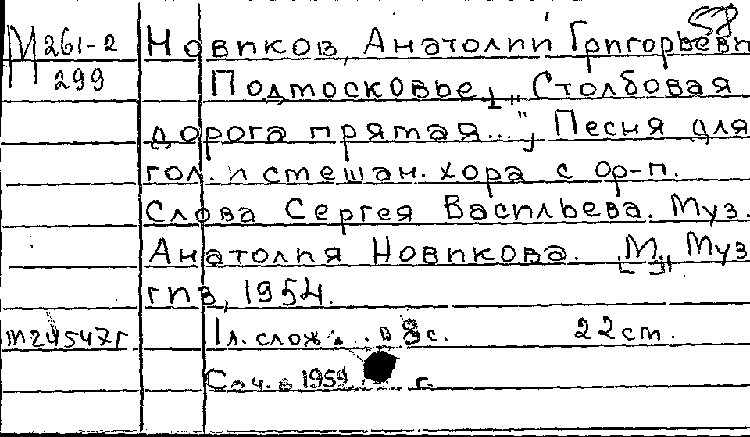 58
М 261-2
299
Новиков, Анатолий Григорьеви
Подмосковье, „Столбовая
дорога прямая...", Песня для
гол. и смешан. хора с ор-п.
Слова Сергея Васильева. Муз.
Анатолия Новикова. [М.], Муз
гиз, 1954.
м24547г 1 л. слож. в 8 с. 22 см.
1959 г.